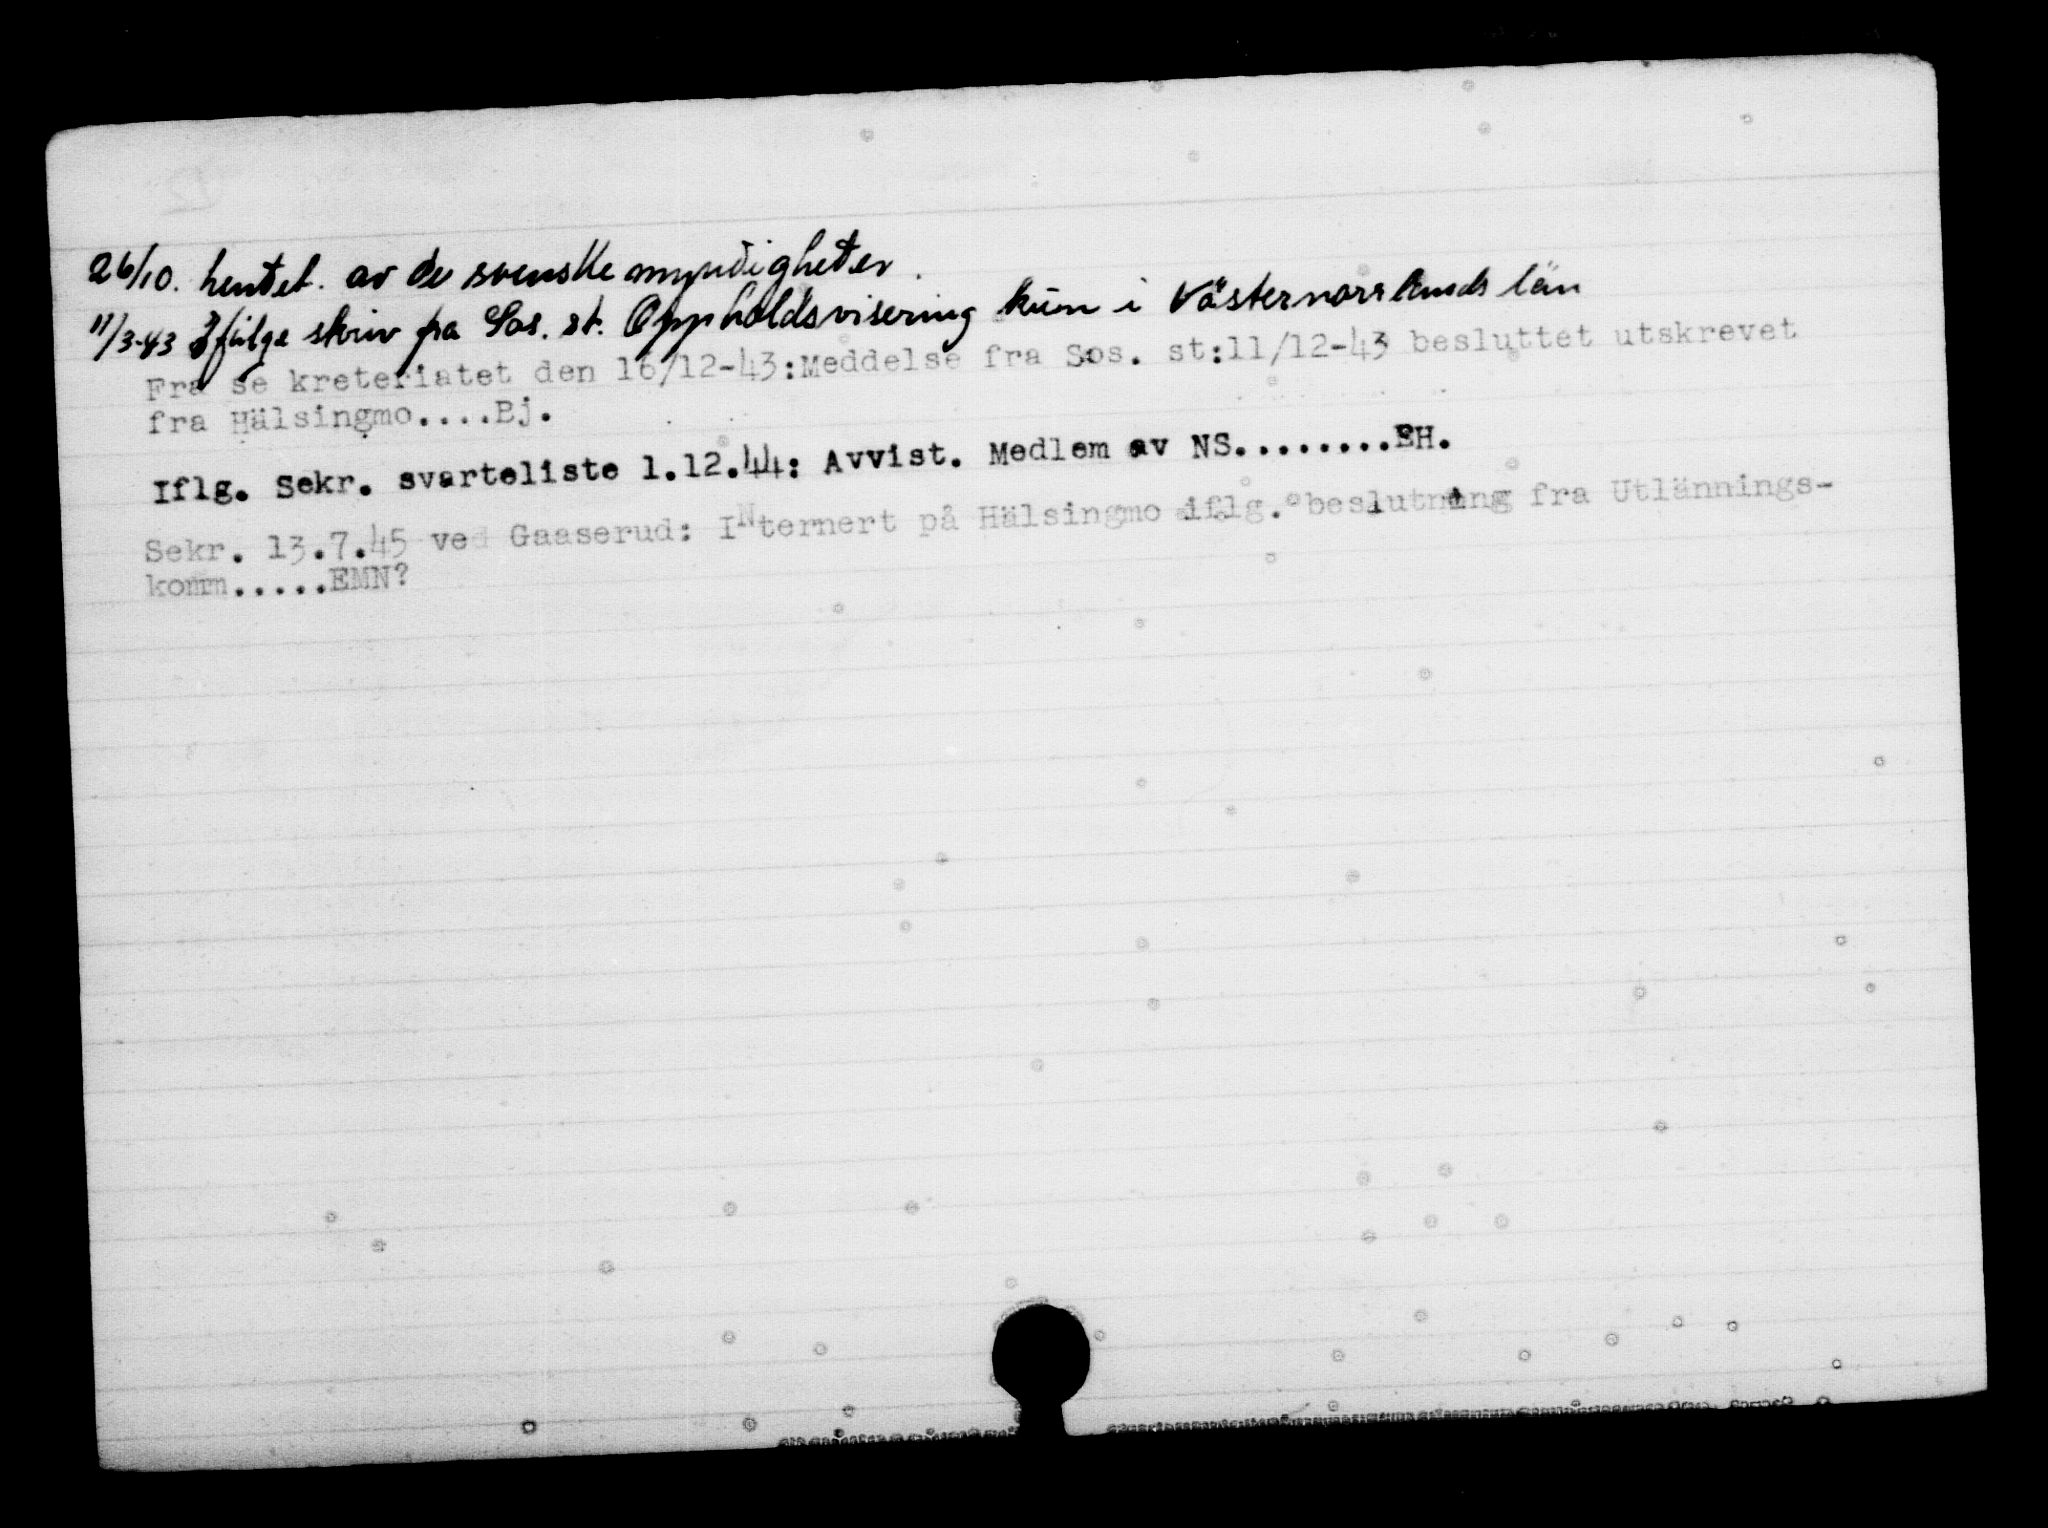 26/10. hentet. av de svenske myndigheter.
11/3-43 Ifølge skriv fra Sos. st. Oppholdsvisering kun i Västernorrlands län
Fra se kreteriatet den 16/12-43:Meddelse fra Sos. st:11/12-43 besluttet utskrevet
fra Hälsingmo....Bj.
Iflg. Sekr. svarteliste 1.12.44: Avvist. Medlem av NS........EH.
Sekr. 13.7.45 ved Gaaserud: INternert på Hälsingmo iflg. beslutning fra Utlännings-
komm.....EMN?